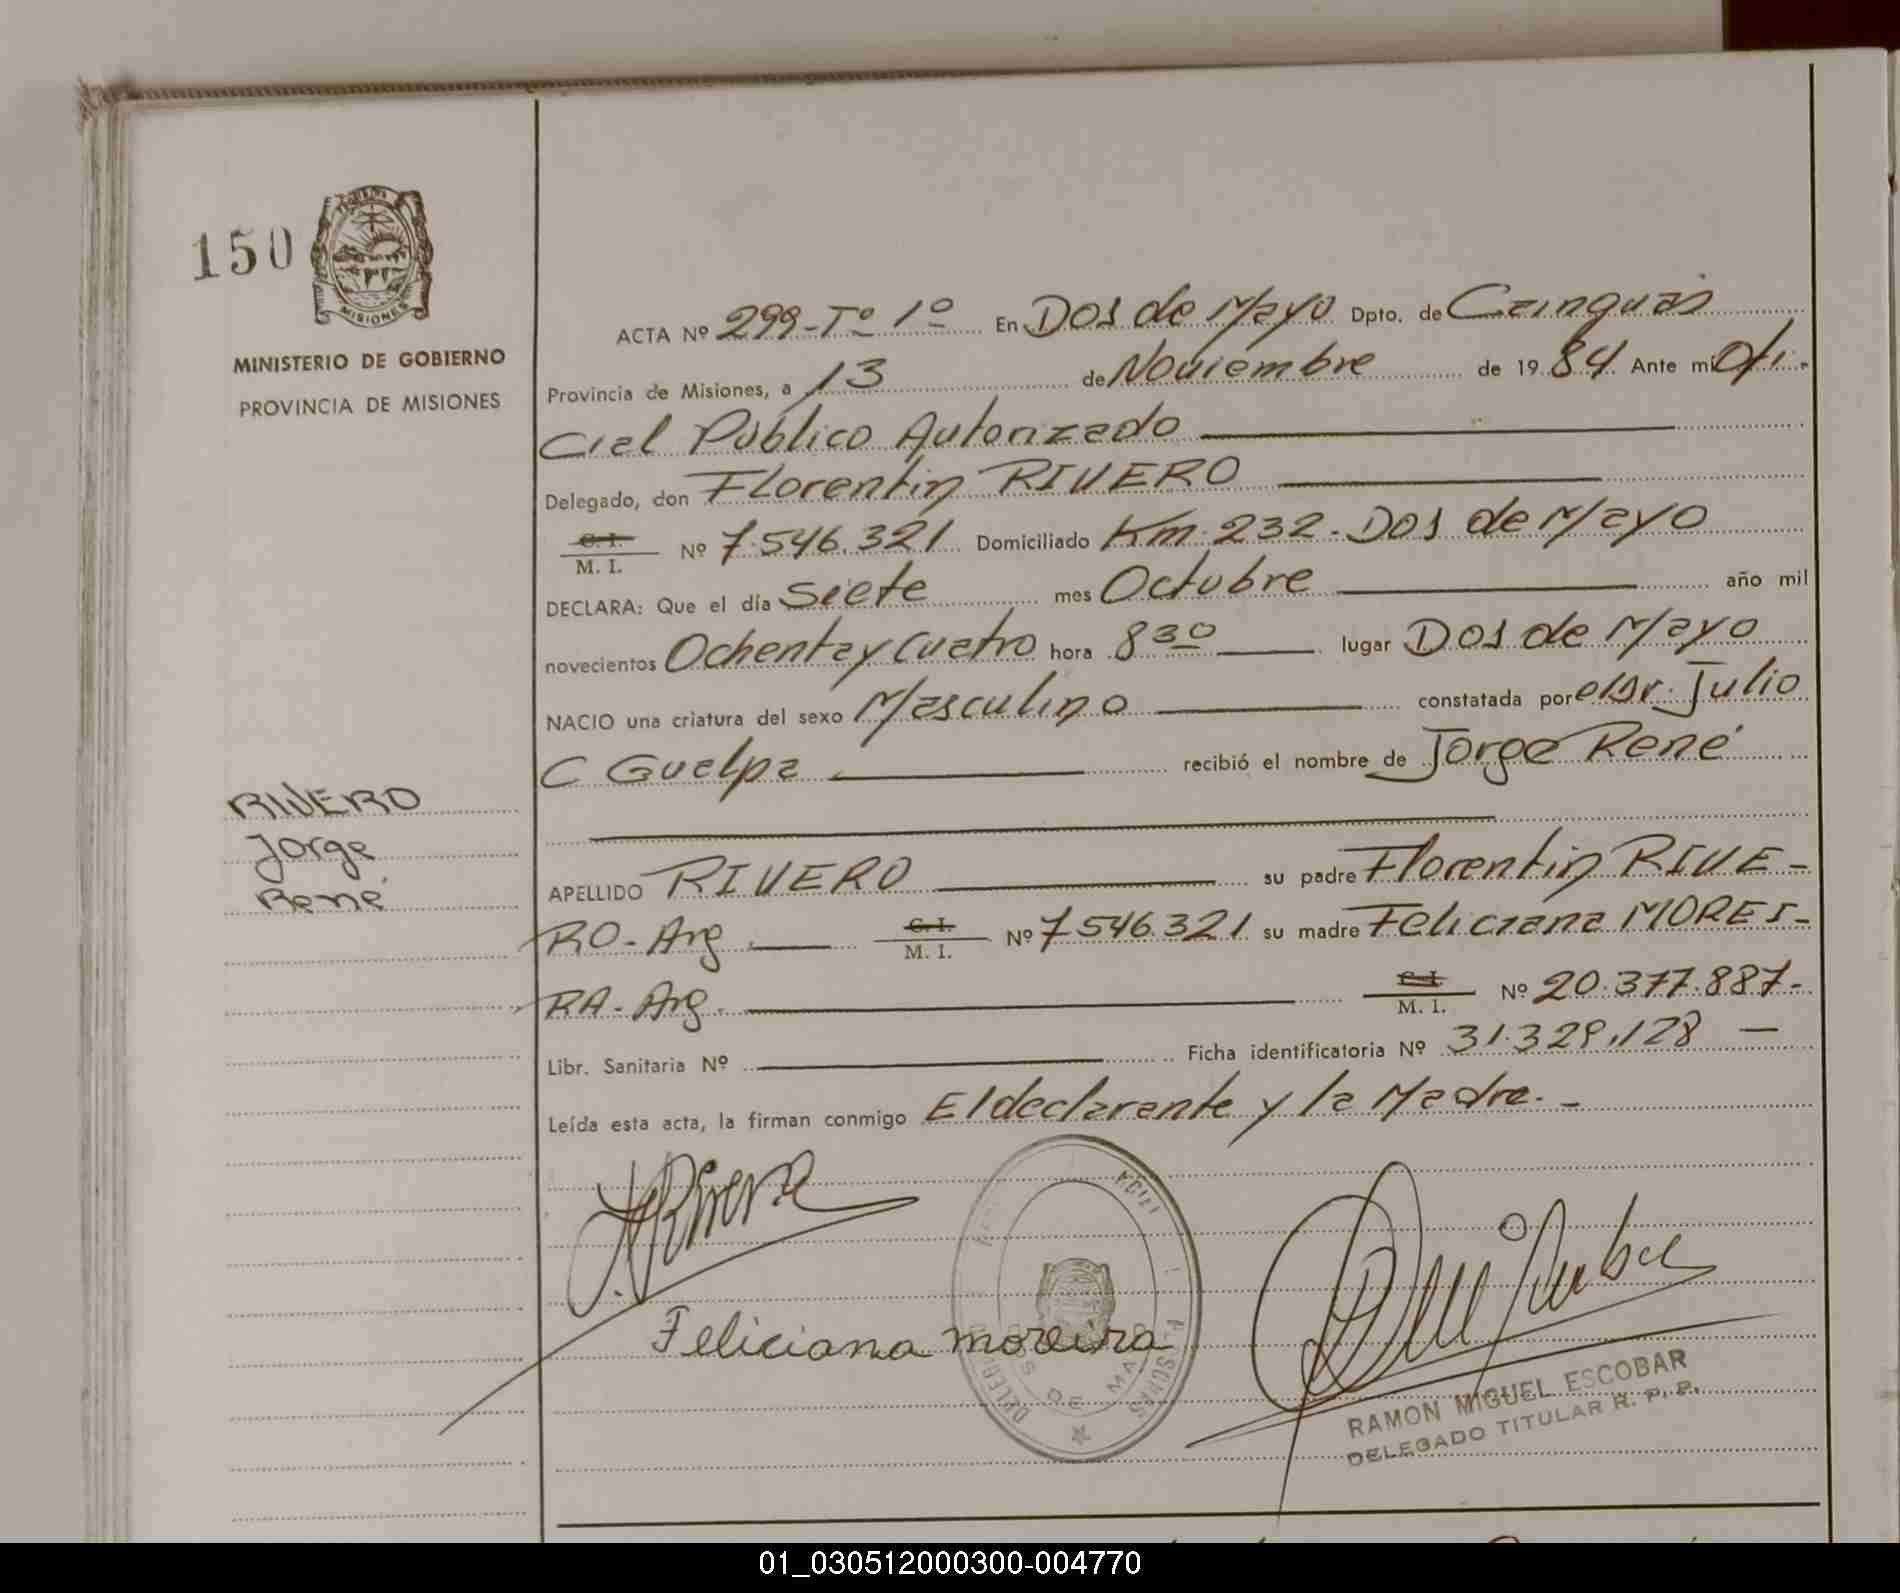 150
MISIONES
MINISTERIO DE GOBIERNO
PROVINCIA DE MISIONES
ACTA Nº 299-Tº 1º En Dos de Mayo Dpto. de Cainguás
Provincia de Misiones, a 13 de Noviembre de 1984 Ante mi Ofi-
cial Público Autorizado
Delegado, don Florentin RIVERO
C. I.
M. I. Nº 7.546.321 Domiciliado Km. 232 - Dos de Mayo
DECLARA: Que el día Siete mes Octubre año mil
novecientos Ochenta y Cuatro hora 8 30 lugar Dos de Mayo
NACIO una criatura del sexo Masculino constatada por el Dr. Julio
C Guelpa recibió el nombre de Jorge René
RIVERO
Jorge
René
APELLIDO RIVERO su padre Florentin RIVE-
RO - Arg C. I.
M. I. Nº 7546.321 su madre Feliciana MOREI-
RA - Arg. C. I.
M. I. Nº 20.377.887-
Libr. Sanitaria Nº Ficha identificatoria Nº 31.329.128 —
Leída esta acta, la firman conmigo El declarante y la Madre. -
Feliciana moreira
DOS DE MAYO
RAMON MIGUEL ESCOBAR
DELEGADO TITULAR R. P. P.
01_030512000300-004770